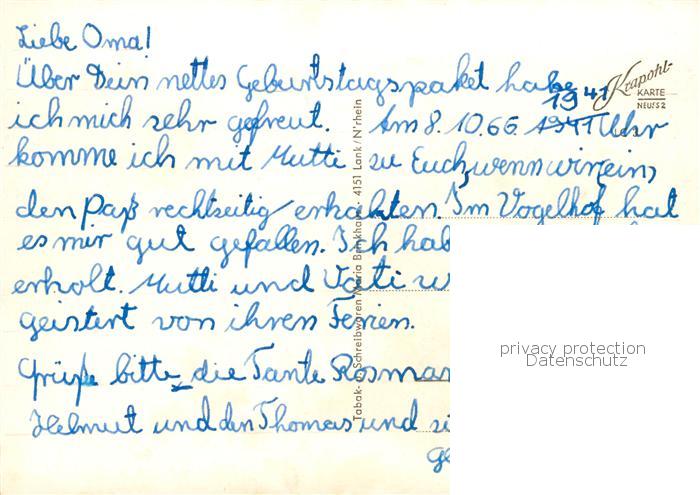 Liebe Oma!
Über Dein nettes Geburtstagspaket habe
ich mich sehr gefreut. Am 8. 10.66. 1941 Uhr
komme ich mit Mutti zu Euch, wenn wir
den Paß rechtzeitig erhalten. Im Vogelhof hat
es mir gut gefallen. Ich hab
erholt. Mutti und Vati w
geistert von ihren Ferien.
Grüße bitte die Tante Rosmar
Helmut und den Thomas und si
ge
Krapohl-
KARTE
NEUSS 2
Tabak- u. Schreibwaren Maria Brinkhaus · 4151 Lank / N'rhein
privacy protection
Datenschutz